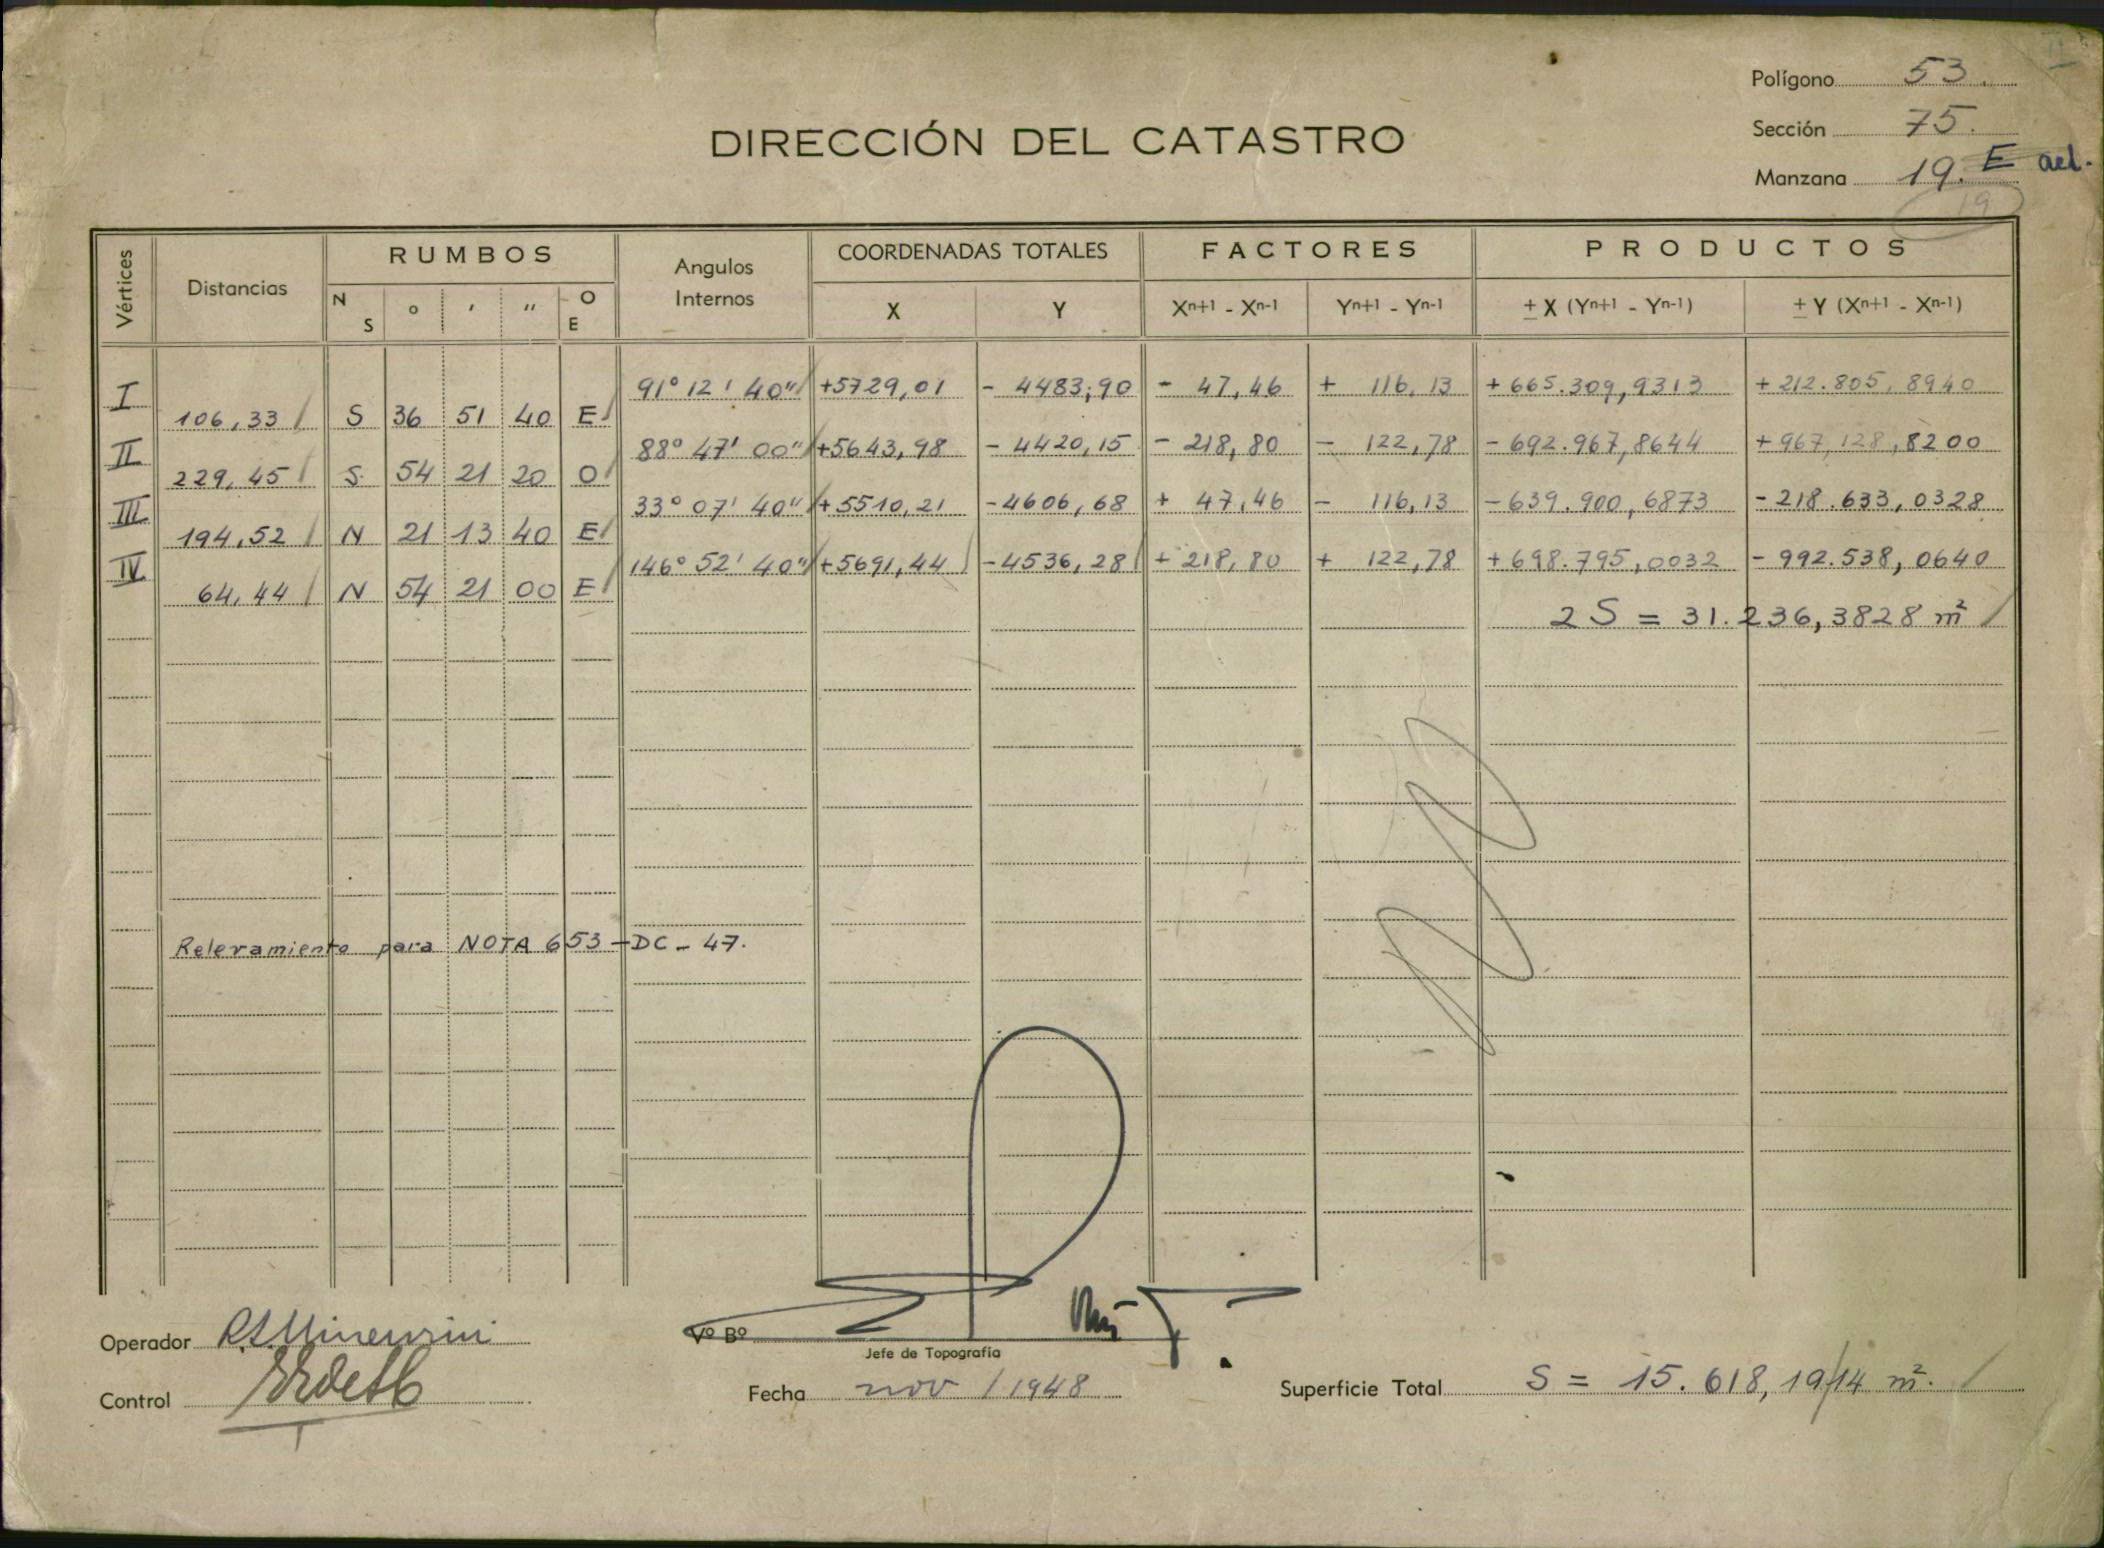 Polígono 53.
DIRECCIÓN DEL CATASTRO
Sección 75.
Manzana 19. E ael.
19
Vértices Distancias RUMBOS Angulos Internos COORDENADAS TOTALES FACTORES PRODUCTOS
N S ° ' " O E X Y Xn+1 - Xn-1 Yn+1 - Yn-1 ± X (Yn+1 - Yn-1) ± Y (Xn+1 - Xn-1)
I 91° 12' 40" +5729,01 - 4483,90 - 47,46 + 116,13 +665.309,9313 +212.805,8940
106,33 S 36 51 40 E
II 88° 47' 00" +5643,98 - 4420,15 - 218,80 - 122,78 -692.967,8644 +967.128,8200
229,45 S 54 21 20 O
III 33° 07' 40" +5510,21 -4606,68 + 47,46 - 116,13 -639.900,6873 -218.633,0328
194,52 N 21 13 40 E
IV 146° 52' 40" +5691,44 -4536,28 + 218,80 + 122,78 +698.795,0032 -992.538,0640
64,44 N 54 21 00 E
2 S = 31.236,3828 m²
Relevamiento para NOTA 653-DC-47.
Operador
Vº Bº
Jefe de Topografía
Control
Fecha nov / 1948
Superficie Total S = 15.618,1914 m².